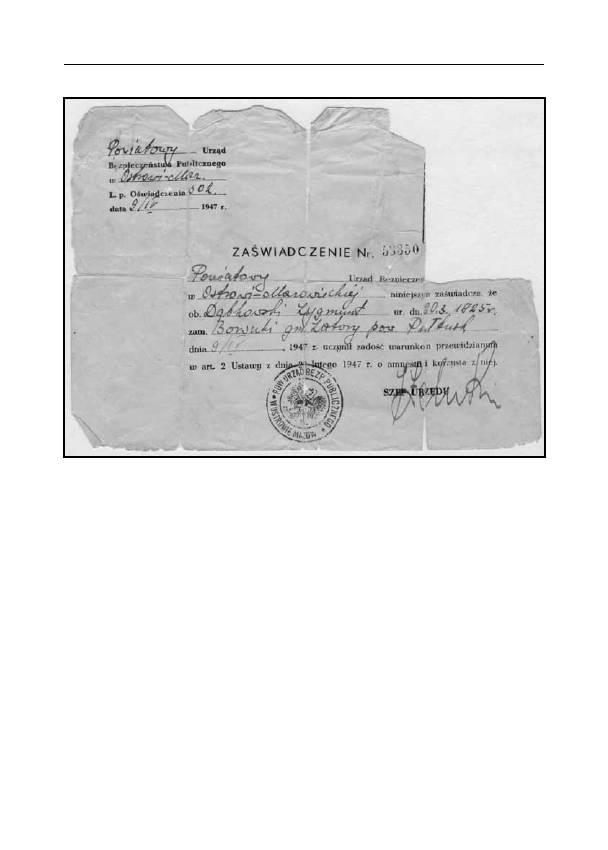 Powiatowy Urząd
Bezpieczeństwa Publicznego
w Ostrowi-Maz.
L. p. Oświadczenia 302.
dnia 9/IV 1947 r.
ZAŚWIADCZENIE Nr. 53350
Powiatowy Urząd Bezpiecze
w Ostrowi-Mazowieckiej niniejszym zaświadcza, że
ob. Dąbkowski Zygmunt ur. dn. 20.3. 1925 r.
zam. gm. Zatory pow. Pułtusk
dnia 9/IV 1947 r. uczynił zadość warunkom przewidzianym
w art. 2 Ustawy z dnia lutego 1947 r. o amnestii i korzysta z niej.
SZEF URZĘDU
POW. URZĄD BEZP. PUBLICZNEGO
W OSTROWIE MAZOW.